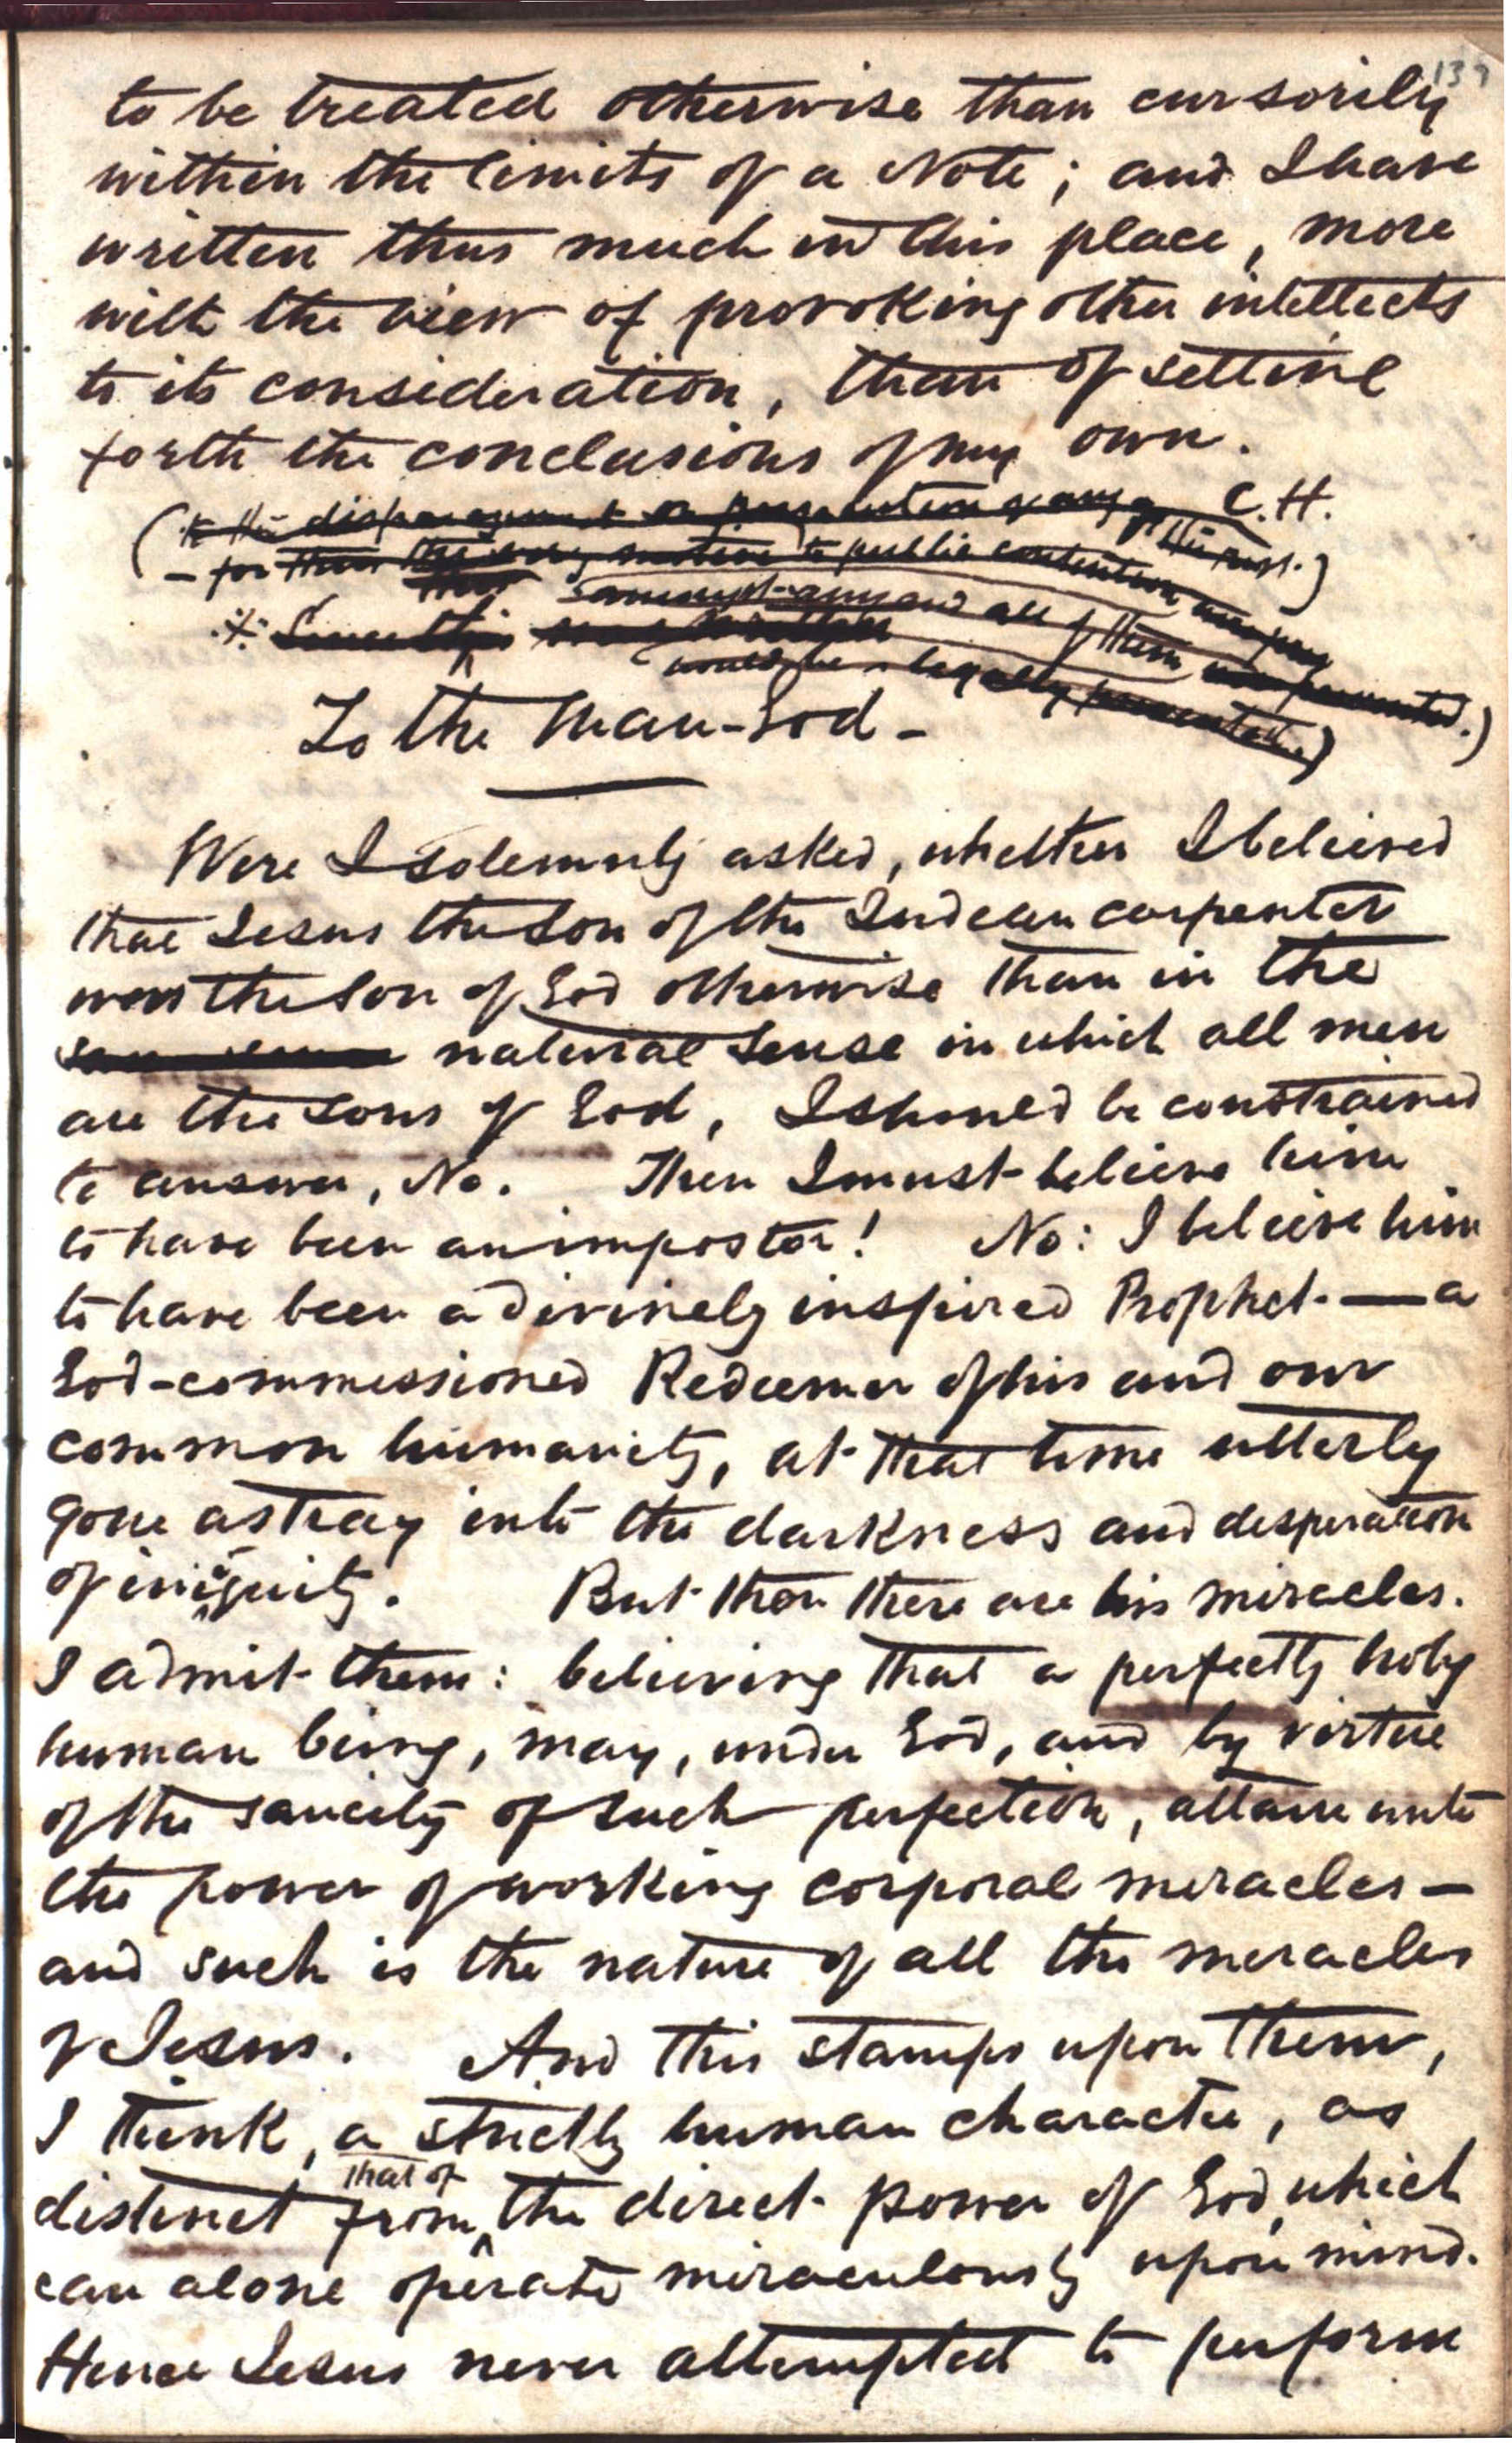 139
to be treated otherwise than cursorily
within the limits of a Note; and I have
written thus much in this place, more
with the view of provoking other intellects
to its consideration, than of setting
forth the conclusions of my own.
C.H.
(to the disparagement or persecution of any of the rest.)
– for the to public contention
any and all of them
would be legally persecuted.)
To the Man-God –
Were I solemnly asked, whether I believed
that Jesus the Son of the Judean carpenter
was the Son of God otherwise than in the
natural sense in which all men
are the sons of God, I should be constrained
to answer, No. Then I must believe him
to have been an impostor! No: I believe him
to have been a divinely inspired Prophet — a
God-commissioned Redeemer of his and our
common humanity, at that time utterly
gone astray into the darkness and desperation
of iniquity. But then there are his miracles.
I admit them: believing that a perfectly holy
human being, may, under God, and by virtue
of the sancity of such perfection, attain unto
the power of working corporal miracles –
and such is the nature of all the miracles
of Jesus. And this stamps upon them,
I think, a strictly human character, as
distinct from that of the direct power of God, which
can alone operate miraculously upon mind.
Hence Jesus never attempted to perform